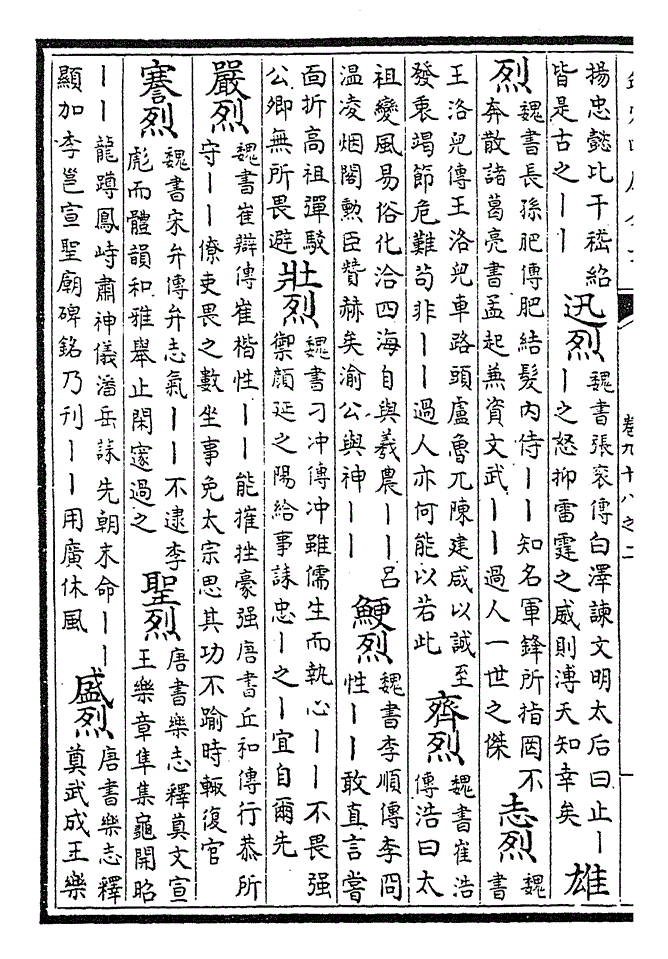 揚忠懿比干嵇紹
皆是古之——
迅烈
魏書張袞傳白澤諫文明太后曰止—
—之怒抑雷霆之威則溥天知幸矣
雄
烈
魏書長孫肥傳肥結髮内侍——知名軍鋒所指罔不
奔散諸葛亮書孟起兼資文武——過人一世之傑
志烈
魏
書
王洛兒傳王洛兒車路頭盧魯兀陳建咸以誠至
發衷竭節危難苟非——過人亦何能以若此
齊烈
魏書崔浩
傳浩曰太
祖變風易俗化洽四海自與羲農——呂
温凌烟閣勲臣贊赫矣渝公與神——
鯁烈
魏書李順傳李冏
性——敢直言嘗
面折高祖彈駮
公卿無所畏避
壯烈
魏書刁冲傳冲雖儒生而執心——不畏强
禦顔延之陽給事誄忠—之—宜自爾先
嚴烈
魏書崔辯傳崔楷性——能摧挫豪强唐書丘和傳行恭所
守——僚吏畏之數坐事免太宗思其功不踰時輙復官
謇烈
魏書宋弁傳弁志氣——不逮李
彪而體韻和雅舉止閑邃過之
聖烈
唐書樂志釋奠文宣
王樂章隼集龜開昭
——龍蹲鳳峙肅神儀潘岳誄先朝末命——
顯加李邕宣聖廟碑銘乃刊——用廣休風
盛烈
唐書樂志釋
奠武成王樂
卷九十八之二